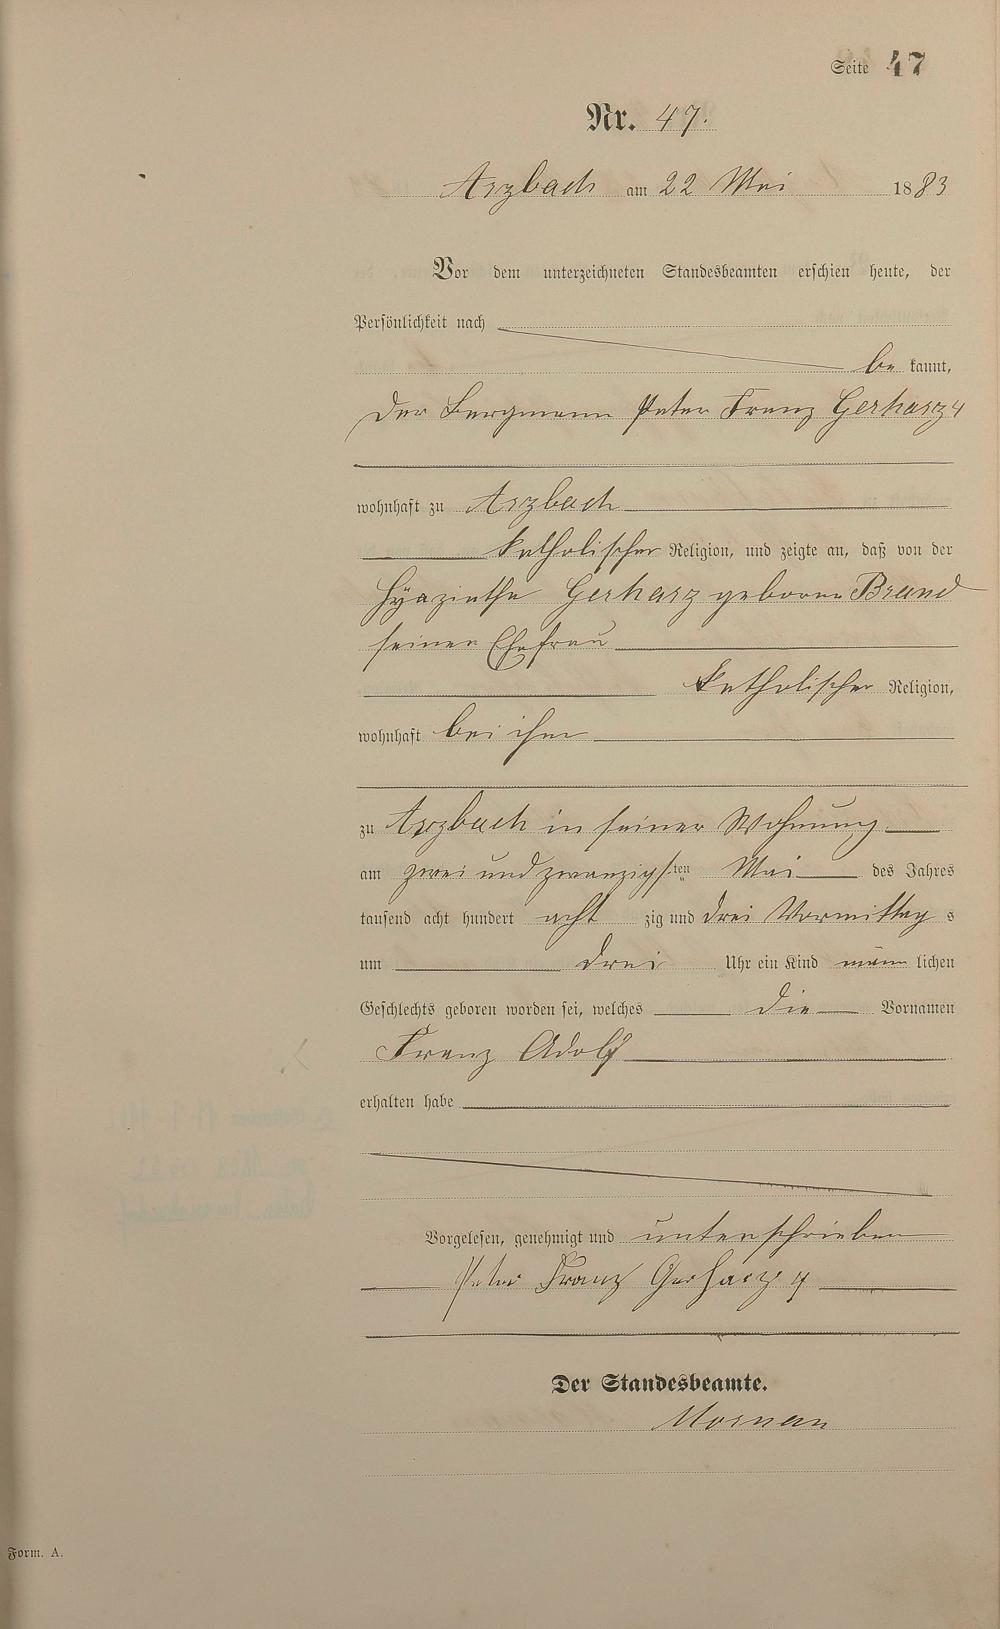 Seite 47
Nr. 47.
Arzbach am 22 Mai 1883
Vor dem unterzeichneten Standesbeamten erschien heute, der
Persönlichkeit nach
be kannt,
der Bergmann Peter Franz Gerharz 4
wohnhaft zu Arzbach
katholischer Religion, und zeigte an, daß von der
Hyazinthe Gerharz geborne Brand
seiner Ehefrau
katholischer Religion,
wohnhaft bei ihm
zu Arzbach in seiner Wohnung
am zwei und zwanzigsten Mai des Jahres
tausend acht hundert acht zig und drei Vormittag s
um drei Uhr ein Kind männ lichen
Geschlechts geboren worden sei, welches die Vornamen
Franz Adolf
erhalten habe
Vorgelesen, genehmigt und unterschrieben
Peter Franz Gerharz 4
Der Standesbeamte.
Form. A.